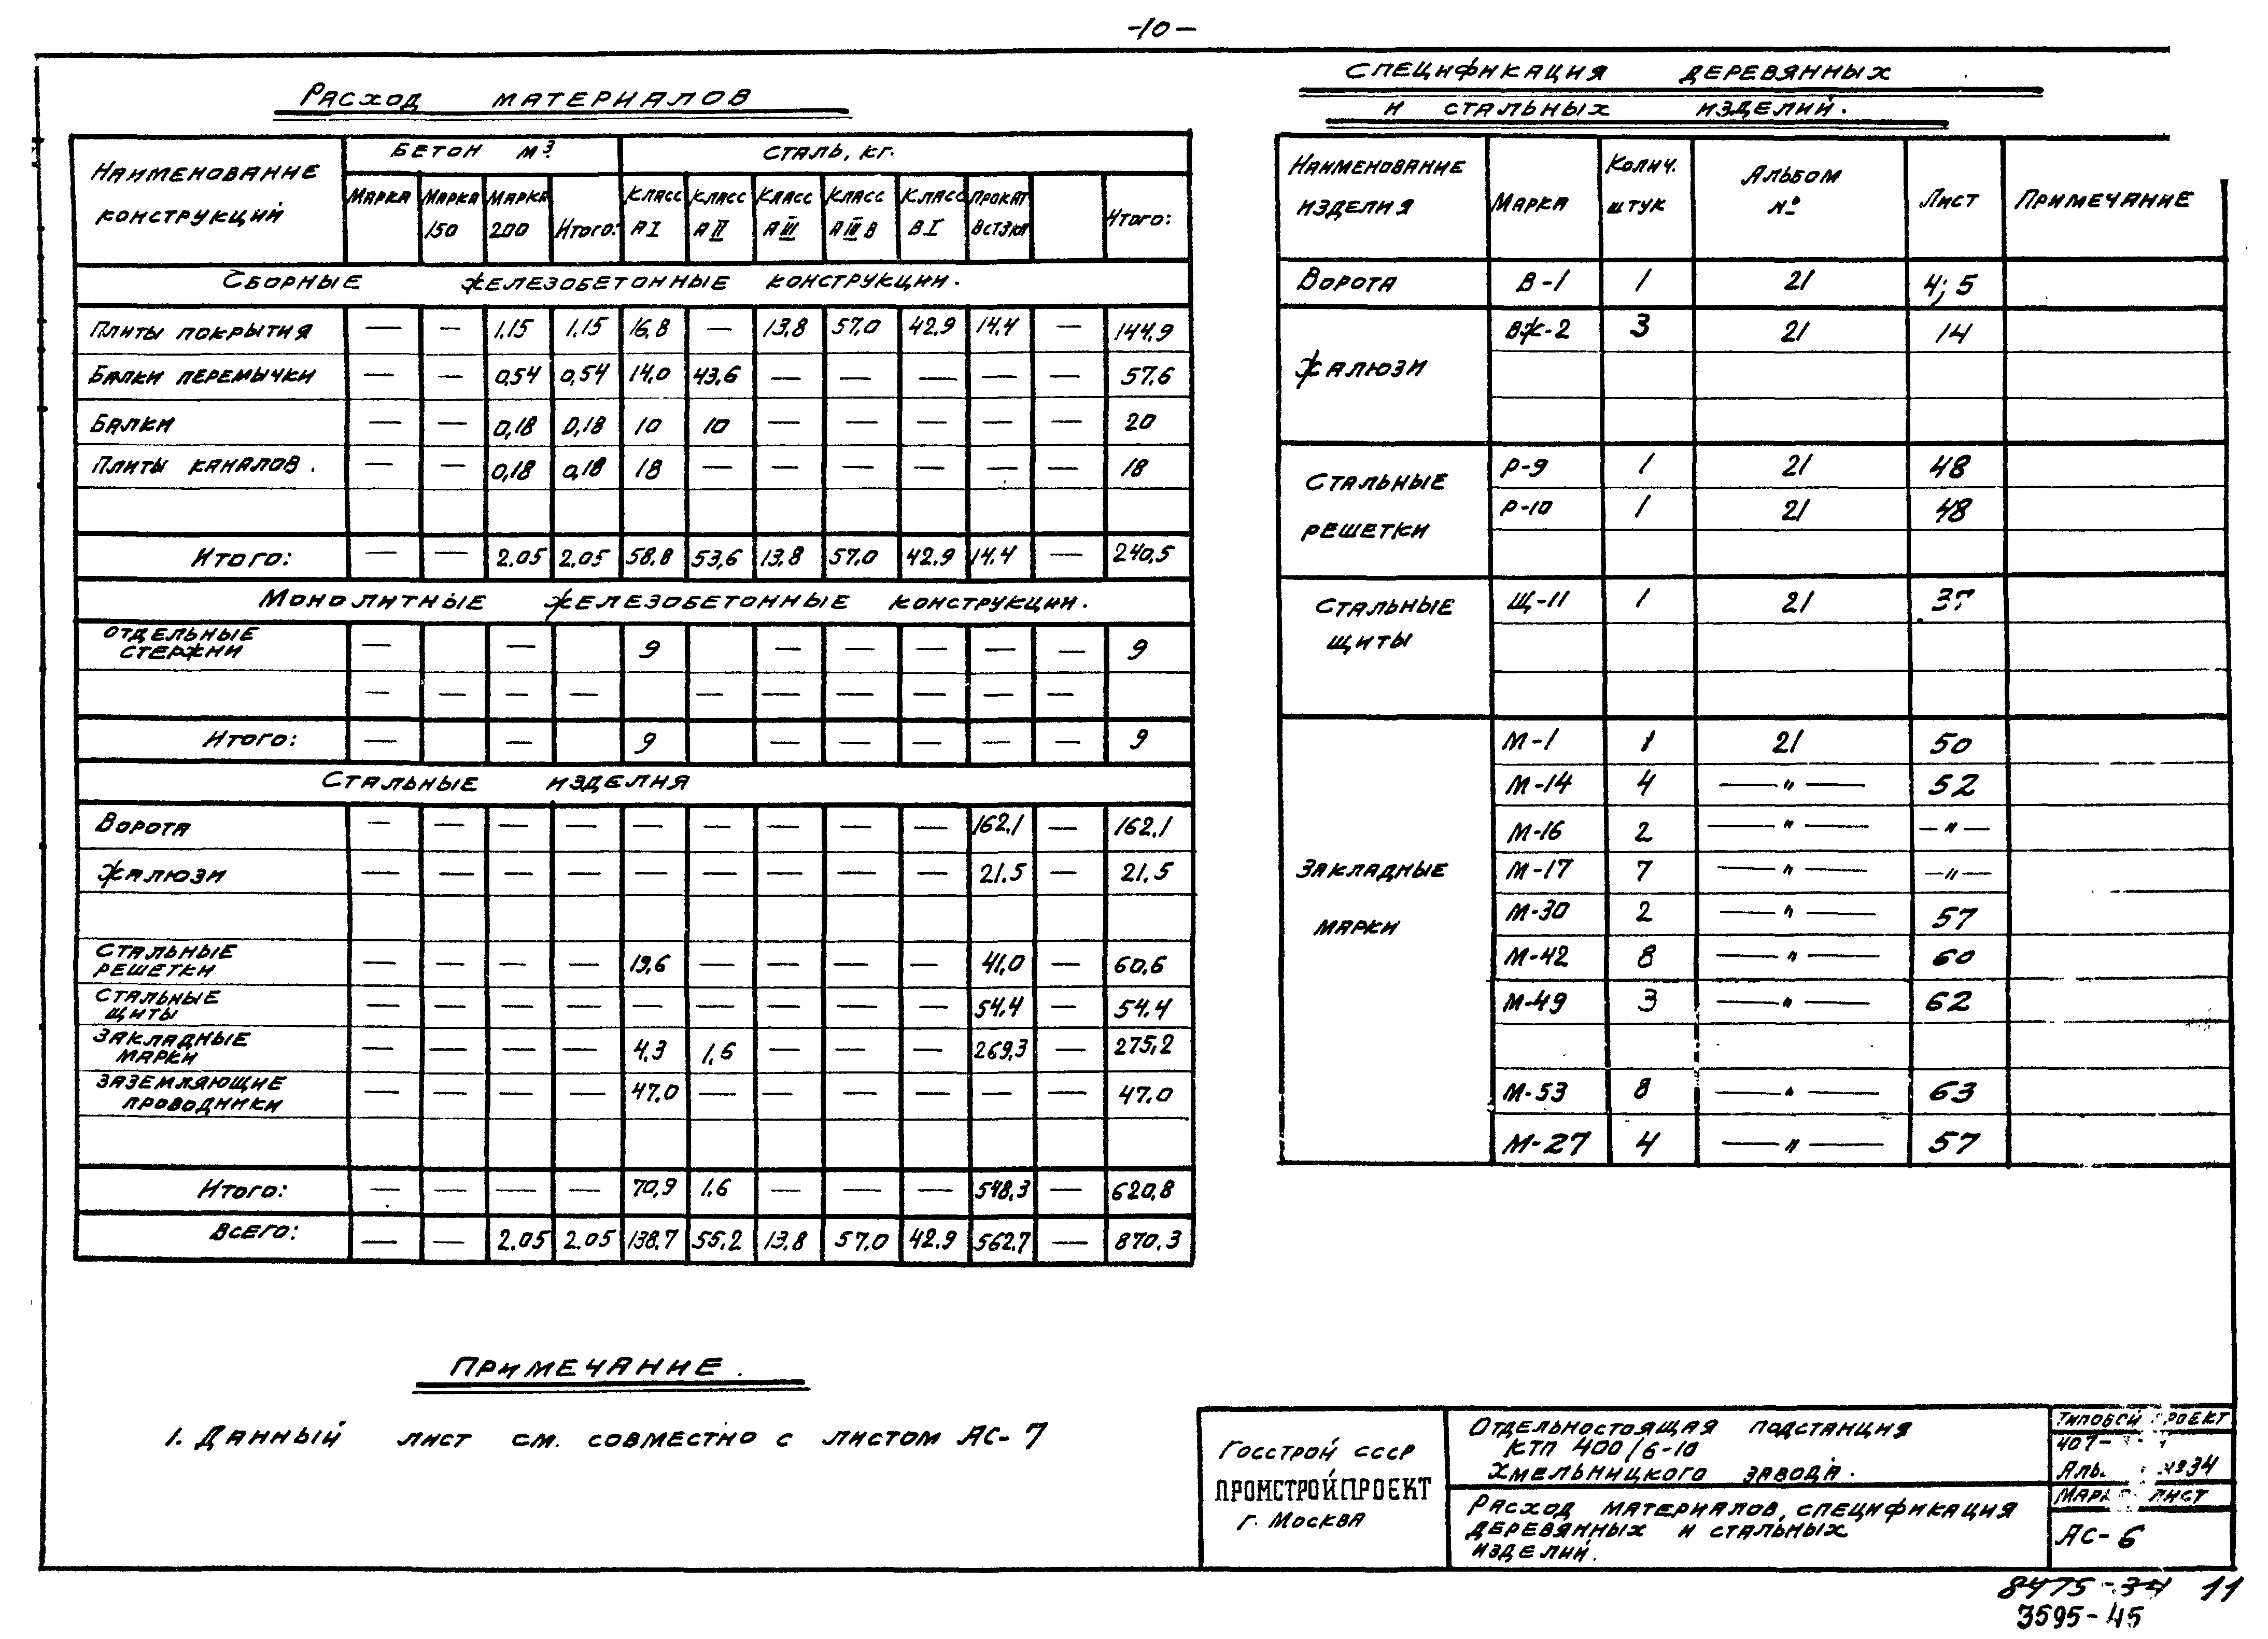 -10-
Расход материалов
Наименование конструкций | Бетон м³. | Сталь, кг.
Марка | Марка 150 | Марка 200 | Итого: | Класс А I | Класс А II | Класс А III | Класс А III В | Класс В I | Прокат | Итого:
Сборные железобетонные конструкции.
Плиты покрытия | — | — | 1.15 | 1.15 | 16,8 | — | 13,8 | 57,0 | 42,9 | 14,4 | — | 144,9
Балки перемычки | — | — | 0,54 | 0,54 | 14,0 | 43,6 | — | — | — | — | — | 57,6
Балки | — | — | 0,18 | 0,18 | 10 | 10 | — | — | — | — | — | 20
Плиты каналов. | — | — | 0,18 | 0,18 | 18 | — | — | — | — | — | — | 18
Итого: | — | — | 2.05 | 2.05 | 58.8 | 53,6 | 13.8 | 57.0 | 42.9 | 14.4 | — | 240,5
Монолитные железобетонные конструкции.
Отдельные стержни | — | — | 9 | — | — | — | — | — | 9
— | — | — | — | — | — | — | — | — | —
Итого: | — | — | 9 | — | — | — | — | — | 9
Стальные изделия
Ворота | — | — | — | — | — | — | — | — | — | 162,1 | — | 162,1
Жалюзи | — | — | — | — | — | — | — | — | — | 21.5 | — | 21.5
Стальные решетки | — | — | — | — | 19,6 | — | — | — | — | 41,0 | — | 60,6
Стальные щиты | — | — | — | — | — | — | — | — | — | 54.4 | — | 54.4
Закладные марки | — | — | — | — | 4,3 | 1,6 | — | — | — | 269,3 | — | 275,2
Заземляющие проводники | — | — | — | — | 47.0 | — | — | — | — | — | — | 47.0
Итого: | — | — | — | — | 70,9 | 1.6 | — | — | — | 548.3 | — | 620,8
Всего: | — | — | 2.05 | 2.05 | 138,7 | 55,2 | 13,8 | 57.0 | 42.9 | 562,7 | — | 870.3
Примечание.
1. Данный лист см. совместно с листом АС-7
Спецификация деревянных
и стальных изделий.
Наименование изделия | Марка | Колич. штук | Альбом № | Лист | Примечание
Ворота | В-1 | 1 | 21 | 4; 5
Жалюзи | ВЖ-2 | 3 | 21 | 14
Стальные решетки | Р-9 | 1 | 21 | 48
Р-10 | 1 | 21 | 48
Стальные щиты | Щ-11 | 1 | 21
Закладные марки | М-1 | 1 | 21 | 50
М-14 | 4 | —"— | 52
М-16 | 2 | —"— | —"—
М-17 | 7 | —"— | —"—
М-30 | 2 | —"— | 57
М-42 | 8 | —"— | 60
М-49 | 3 | —"— | 62
М-53 | 8 | —"— | 63
М-27 | 4 | —"— | 57
Госстрой СССР
ПРОМСТРОЙПРОЕКТ
г. Москва
Отдельностоящая подстанция
КТП 400/6-10
Хмельницкого завода.
Расход материалов, спецификация
деревянных и стальных
изделий.
Типовой проект
407-
Марка лист
АС-6
8475-34 11
3595-45